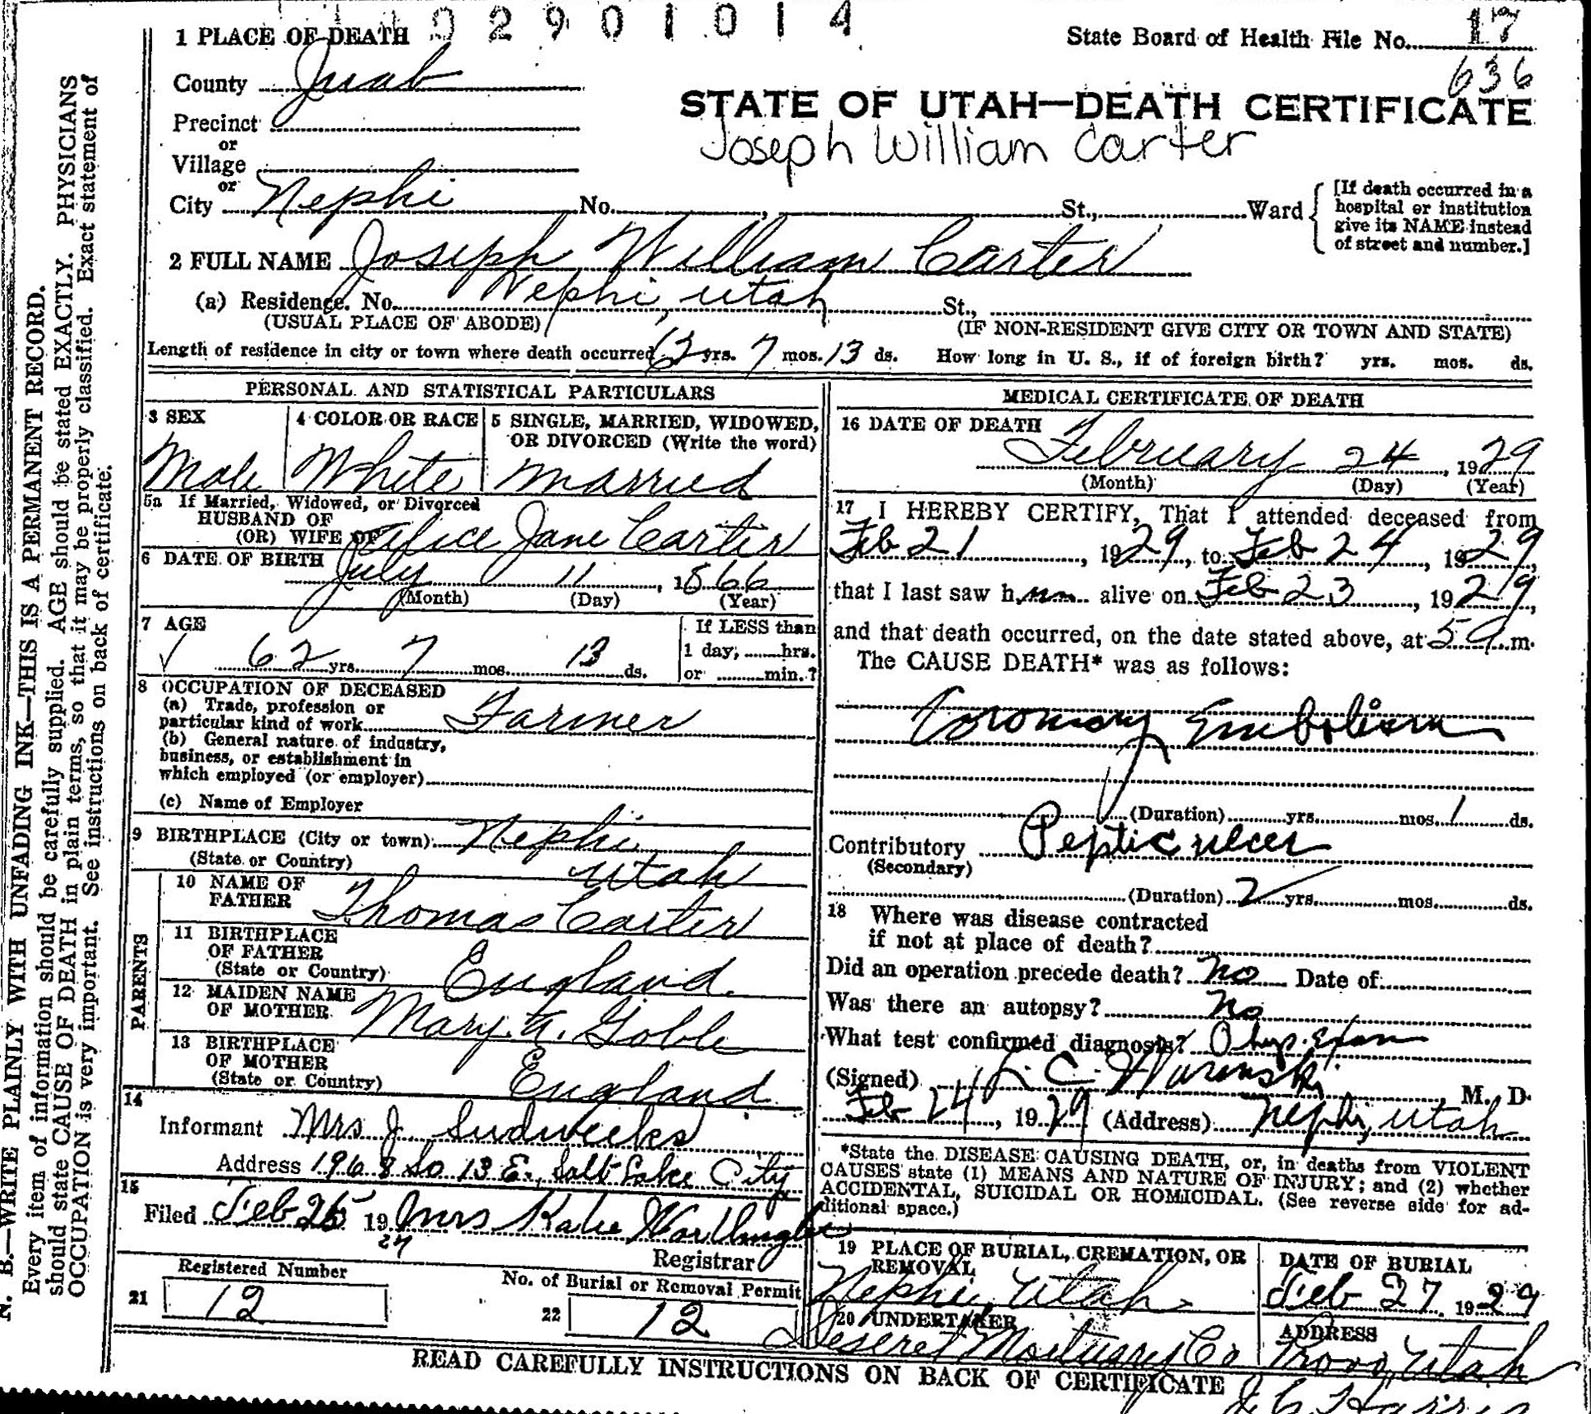 2901014
1 PLACE OF DEATH
State Board of Health File No. 17
636
County Juab
STATE OF UTAH—DEATH CERTIFICATE
Precinct
or
Joseph William Carter
Village
or
City Nephi No. , St., Ward
[If death occurred in a
hospital or institution
give its NAME instead
of street and number.]
2 FULL NAME Joseph William Carter
(a) Residence. No. Nephi, Utah St.,
(USUAL PLACE OF ABODE) (IF NON-RESIDENT GIVE CITY OR TOWN AND STATE)
Length of residence in city or town where death occurred 62 yrs. 7 mos. 13 ds. How long in U. S., if of foreign birth? yrs. mos. ds.
PERSONAL AND STATISTICAL PARTICULARS
3 SEX
Male
4 COLOR OR RACE
White
5 SINGLE, MARRIED, WIDOWED,
OR DIVORCED (Write the word)
Married
5a If Married, Widowed, or Divorced
HUSBAND OF
(OR) WIFE OF Alice Jane Carter
6 DATE OF BIRTH
July 11, 1866
(Month) (Day) (Year)
7 AGE
62 yrs. 7 mos. 13 ds.
If LESS than
1 day, hrs.
or min.?
8 OCCUPATION OF DECEASED
(a) Trade, profession or
particular kind of work Farmer
(b) General nature of industry,
business, or establishment in
which employed (or employer)
(c) Name of Employer
9 BIRTHPLACE (City or town) Nephi
(State or Country) Utah
PARENTS
10 NAME OF
FATHER Thomas Carter
11 BIRTHPLACE
OF FATHER
(State or Country) England.
12 MAIDEN NAME
OF MOTHER Mary A. Goble
13 BIRTHPLACE
OF MOTHER
(State or Country) England
14
Informant Mrs J. Sudweeks
Address 1968 So 13 E., Salt Lake City
15
Filed Feb 25 19 29 Mrs Katie
Registrar
Registered Number
21 12
No. of Burial or Removal Permit
22 12
MEDICAL CERTIFICATE OF DEATH
16 DATE OF DEATH
February 24, 1929
(Month) (Day) (Year)
17 I HEREBY CERTIFY, That I attended deceased from
Feb 21, 1929, to Feb 24, 1929,
that I last saw him alive on Feb 23, 1929,
and that death occurred, on the date stated above, at 5 a.m.
The CAUSE DEATH* was as follows:
Coronary Embolism
(Duration) yrs. mos. 1 ds.
Contributory Peptic ulcer
(Secondary)
(Duration) 2 yrs. mos. ds.
18 Where was disease contracted
if not at place of death?
Did an operation precede death? No Date of
Was there an autopsy? No
What test confirmed diagnosis? Phys. Exam
(Signed) M. D.
Feb 24, 1929 (Address) Nephi, Utah
*State the DISEASE CAUSING DEATH, or, in deaths from VIOLENT
CAUSES state (1) MEANS AND NATURE OF INJURY; and (2) whether
ACCIDENTAL, SUICIDAL OR HOMICIDAL. (See reverse side for ad-
ditional space.)
19 PLACE OF BURIAL, CREMATION, OR
REMOVAL
Nephi, Utah
DATE OF BURIAL
Feb 27, 1929
20 UNDERTAKER
Deseret Mortuary Co
ADDRESS
Provo, Utah
READ CAREFULLY INSTRUCTIONS ON BACK OF CERTIFICATE
N. B.—WRITE PLAINLY WITH UNFADING INK—THIS IS A PERMANENT RECORD.
Every item of information should be carefully supplied. AGE should be stated EXACTLY. PHYSICIANS
should state CAUSE OF DEATH in plain terms, so that it may be properly classified. Exact statement of
OCCUPATION is very important. See instructions on back of certificate.